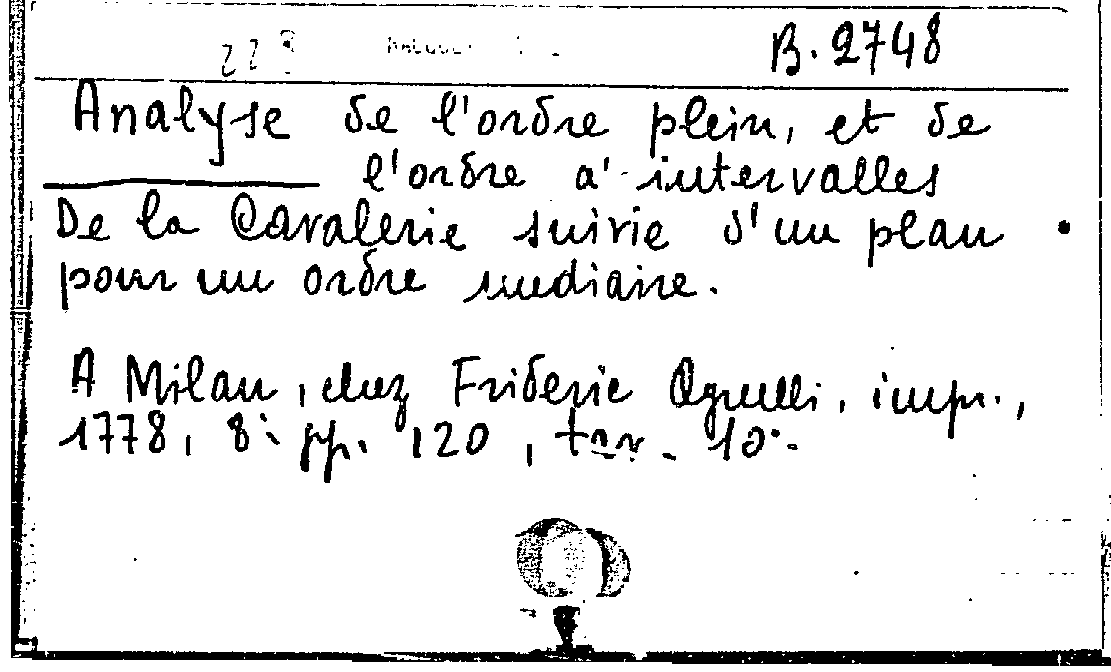 B. 2748
Analyse de l'ordre plein, et de
l'ordre a' intervalles
De la Cavalerie suivie d'un plan
pour un ordre mediaire.
A Milan, chez Frideric Agnelli, impr.,
1778, 8: pp. 120, tav. 10.